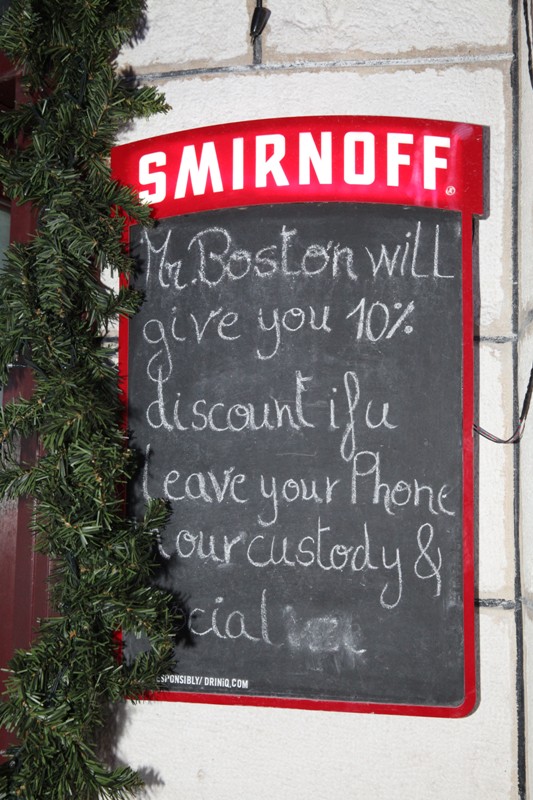 SMIRNOFF
Mr. Boston will
give you 10%
discount if u
leave your Phone
our custody &
RESPONSIBLY/ DRINiQ.COM